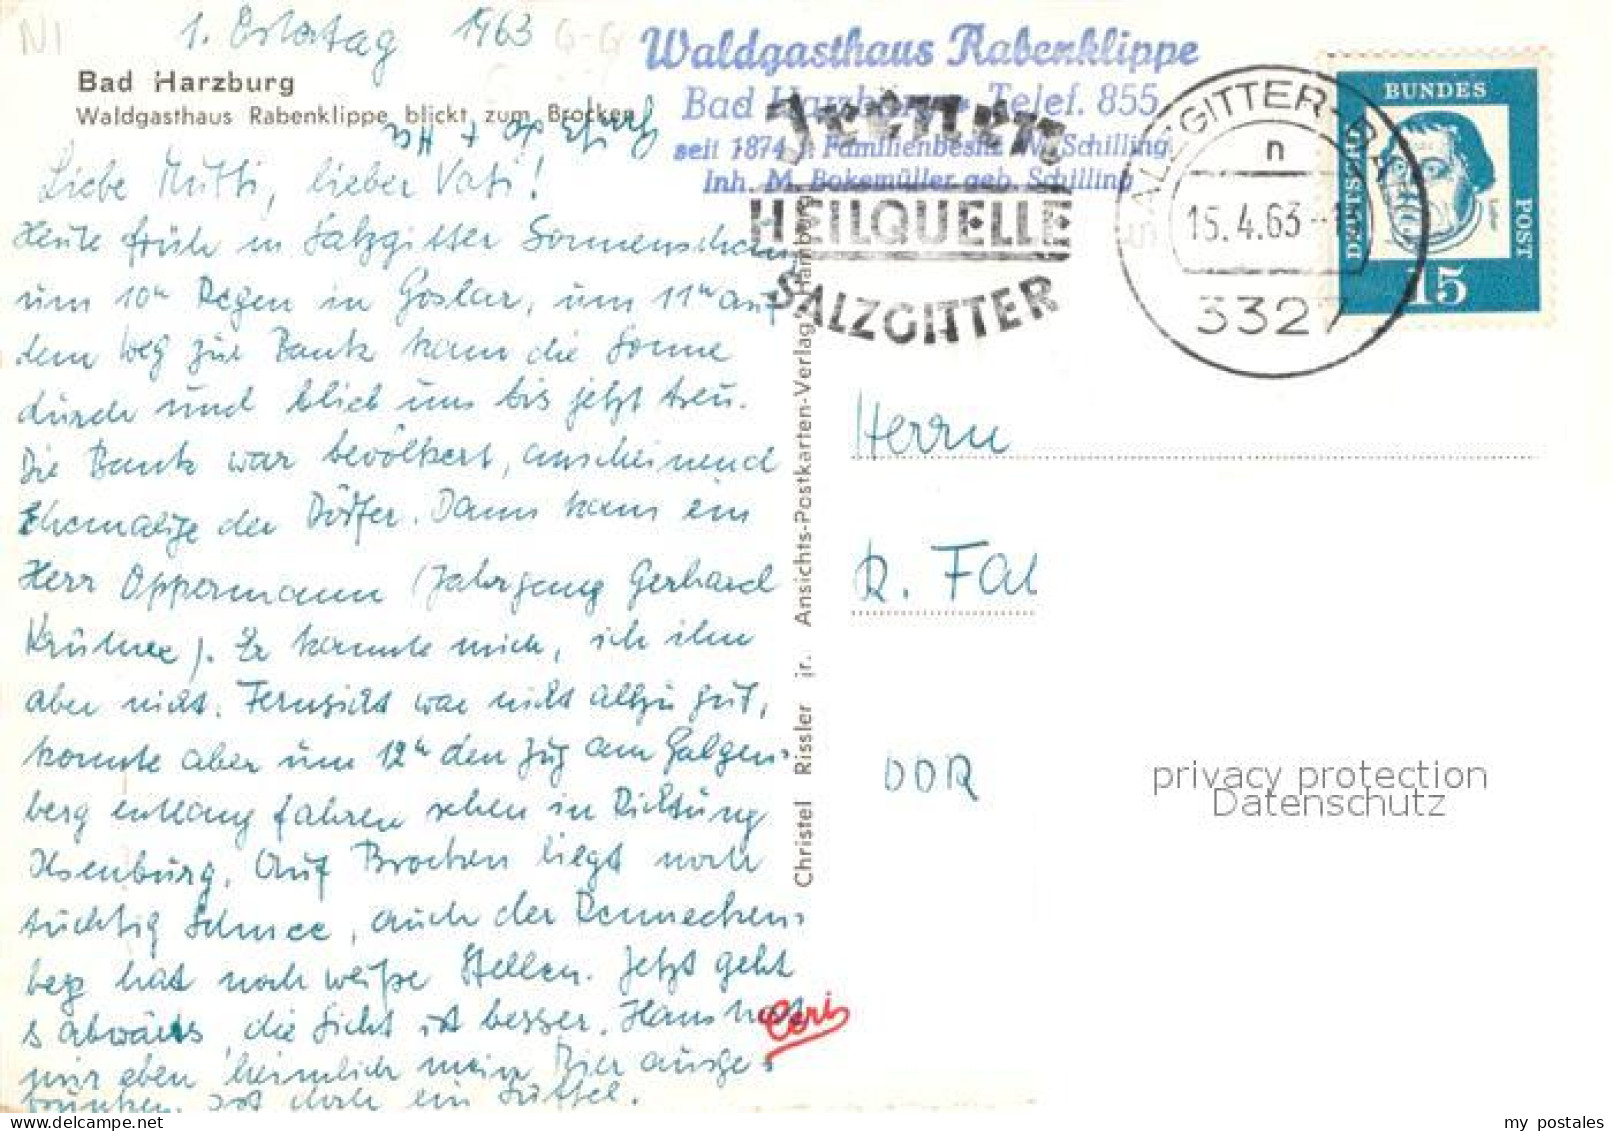 NI
1. Ostertag 1963 G-G
Bad Harzburg
Waldgasthaus Rabenklippe blickt zum Brocken
Waldgasthaus Rabenklippe
Bad Harzburg Telef. 855
seit 1874 i. Familienbesitz W. Schilling
Inh. M. Bokemüller geb. Schilling
HEILQUELLE
SALZGITTER
SALZGITTER-BAD
n
15.4.63
3327
DEUTSCHE
BUNDES
POST
Luther
15
Liebe Mutti, lieber Vati!
Heute früh in Salzgitter Sonnenschein
um 10h Regen in Goslar, um 11h auf
dem Weg zur Bank kam die Sonne
durch und blieb uns bis jetzt treu.
Die Bank war bevölkert, anscheinend
Ehemalige der Dörfer. Dann kam ein
Herr Oppermann (Jahrgang Gerhard
). Er kannte mich, ich ihn
aber nicht. Fernsicht war nicht allzu gut,
konnte aber um 12h den Zug am Galgen-
berg entlang fahren sehen in Richtung
Ilsenburg. Auf Brocken liegt noch
tüchtig Schnee, auch der Rennecken-
berg hat noch weiße Stellen. Jetzt geht
s abwärts, die Sicht ist besser. Hans hat
mir eben heimlich mein Bier ausge-
trunken. Ist doch ein Süffel.
Christel Rissler jr. Ansichts-Postkarten-Verlag, Hamburg
Ceri
Herrn
R. Fal
DDR
privacy protection
Datenschutz
my postales